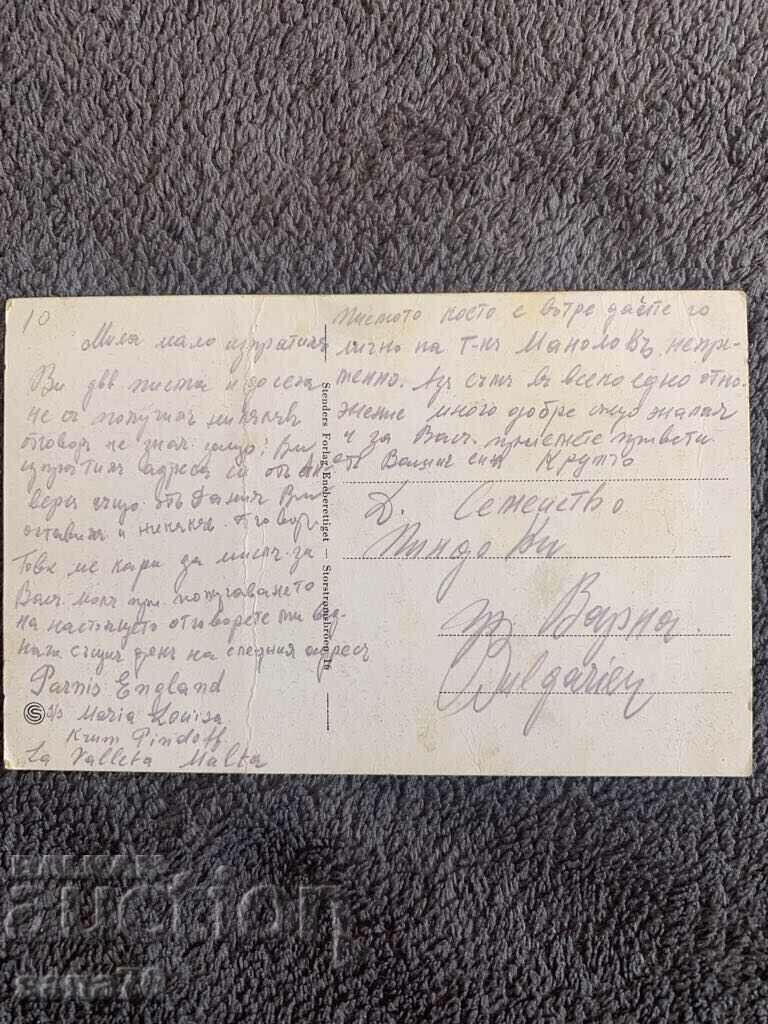 10
Мила мало изпратих
Ви две писма и досега
не съ получих никакъв
отговор не знач защо? Ви
изпратих адреса си от Ан
верс също от Дания Ви
оставихъ и никакъв отговор.
Това ме кара да мисля за
Вас. Моля при получаването
на настоящето отговорете ми вед-
нага същия ден на следния адрес
Parnis England
S/S Maria Louisa
Krum Pindoff
La Valleta Malta
Stenders Forlag Eneberettiget — Storstrømsbroen 16
писмото което е вътре дайте го
лично на Г-нъ Манолов, непре-
менно. Азъ съмъ въ всеко едно отно-
шение много добре също желая
и за Вас. приемете привети
отъ Вашия син Крумчо
Д. Семейство
Пиндови
гр. Варна.
Bulgarien
BALKAN
auction
sena74